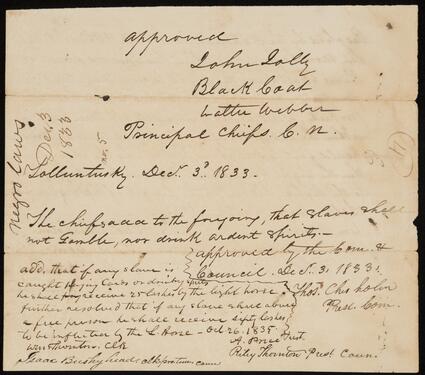 approved
John Jolly
Black Coat
Walter Webber
Principal Chiefs. C. N.
Negro laws
Dec. 3
1833
no. 5
Tolluntusky. Decr. 3d. 1833.
The chiefs add to the foregoing, that slaves shall
not Gamble, nor drink ardent spirits.—
approved by the Com. &
Council. Dec. 3. 1833.
Thos. Chisholm
Prest. Com.
add. that if any slave is
caught playing cards or drinking spirits
he shall receive 25 lashes by the light horse
further resolved that if any slave shall abuse
a free person
he shall receive lashes
to be inflicted by the L. Horse — Oct 26. 1835
Wm Thornton, Clk
A. Price Prest.
Isaac Bushyhead Clk protem comm
Riley Thornton Prest Coun.